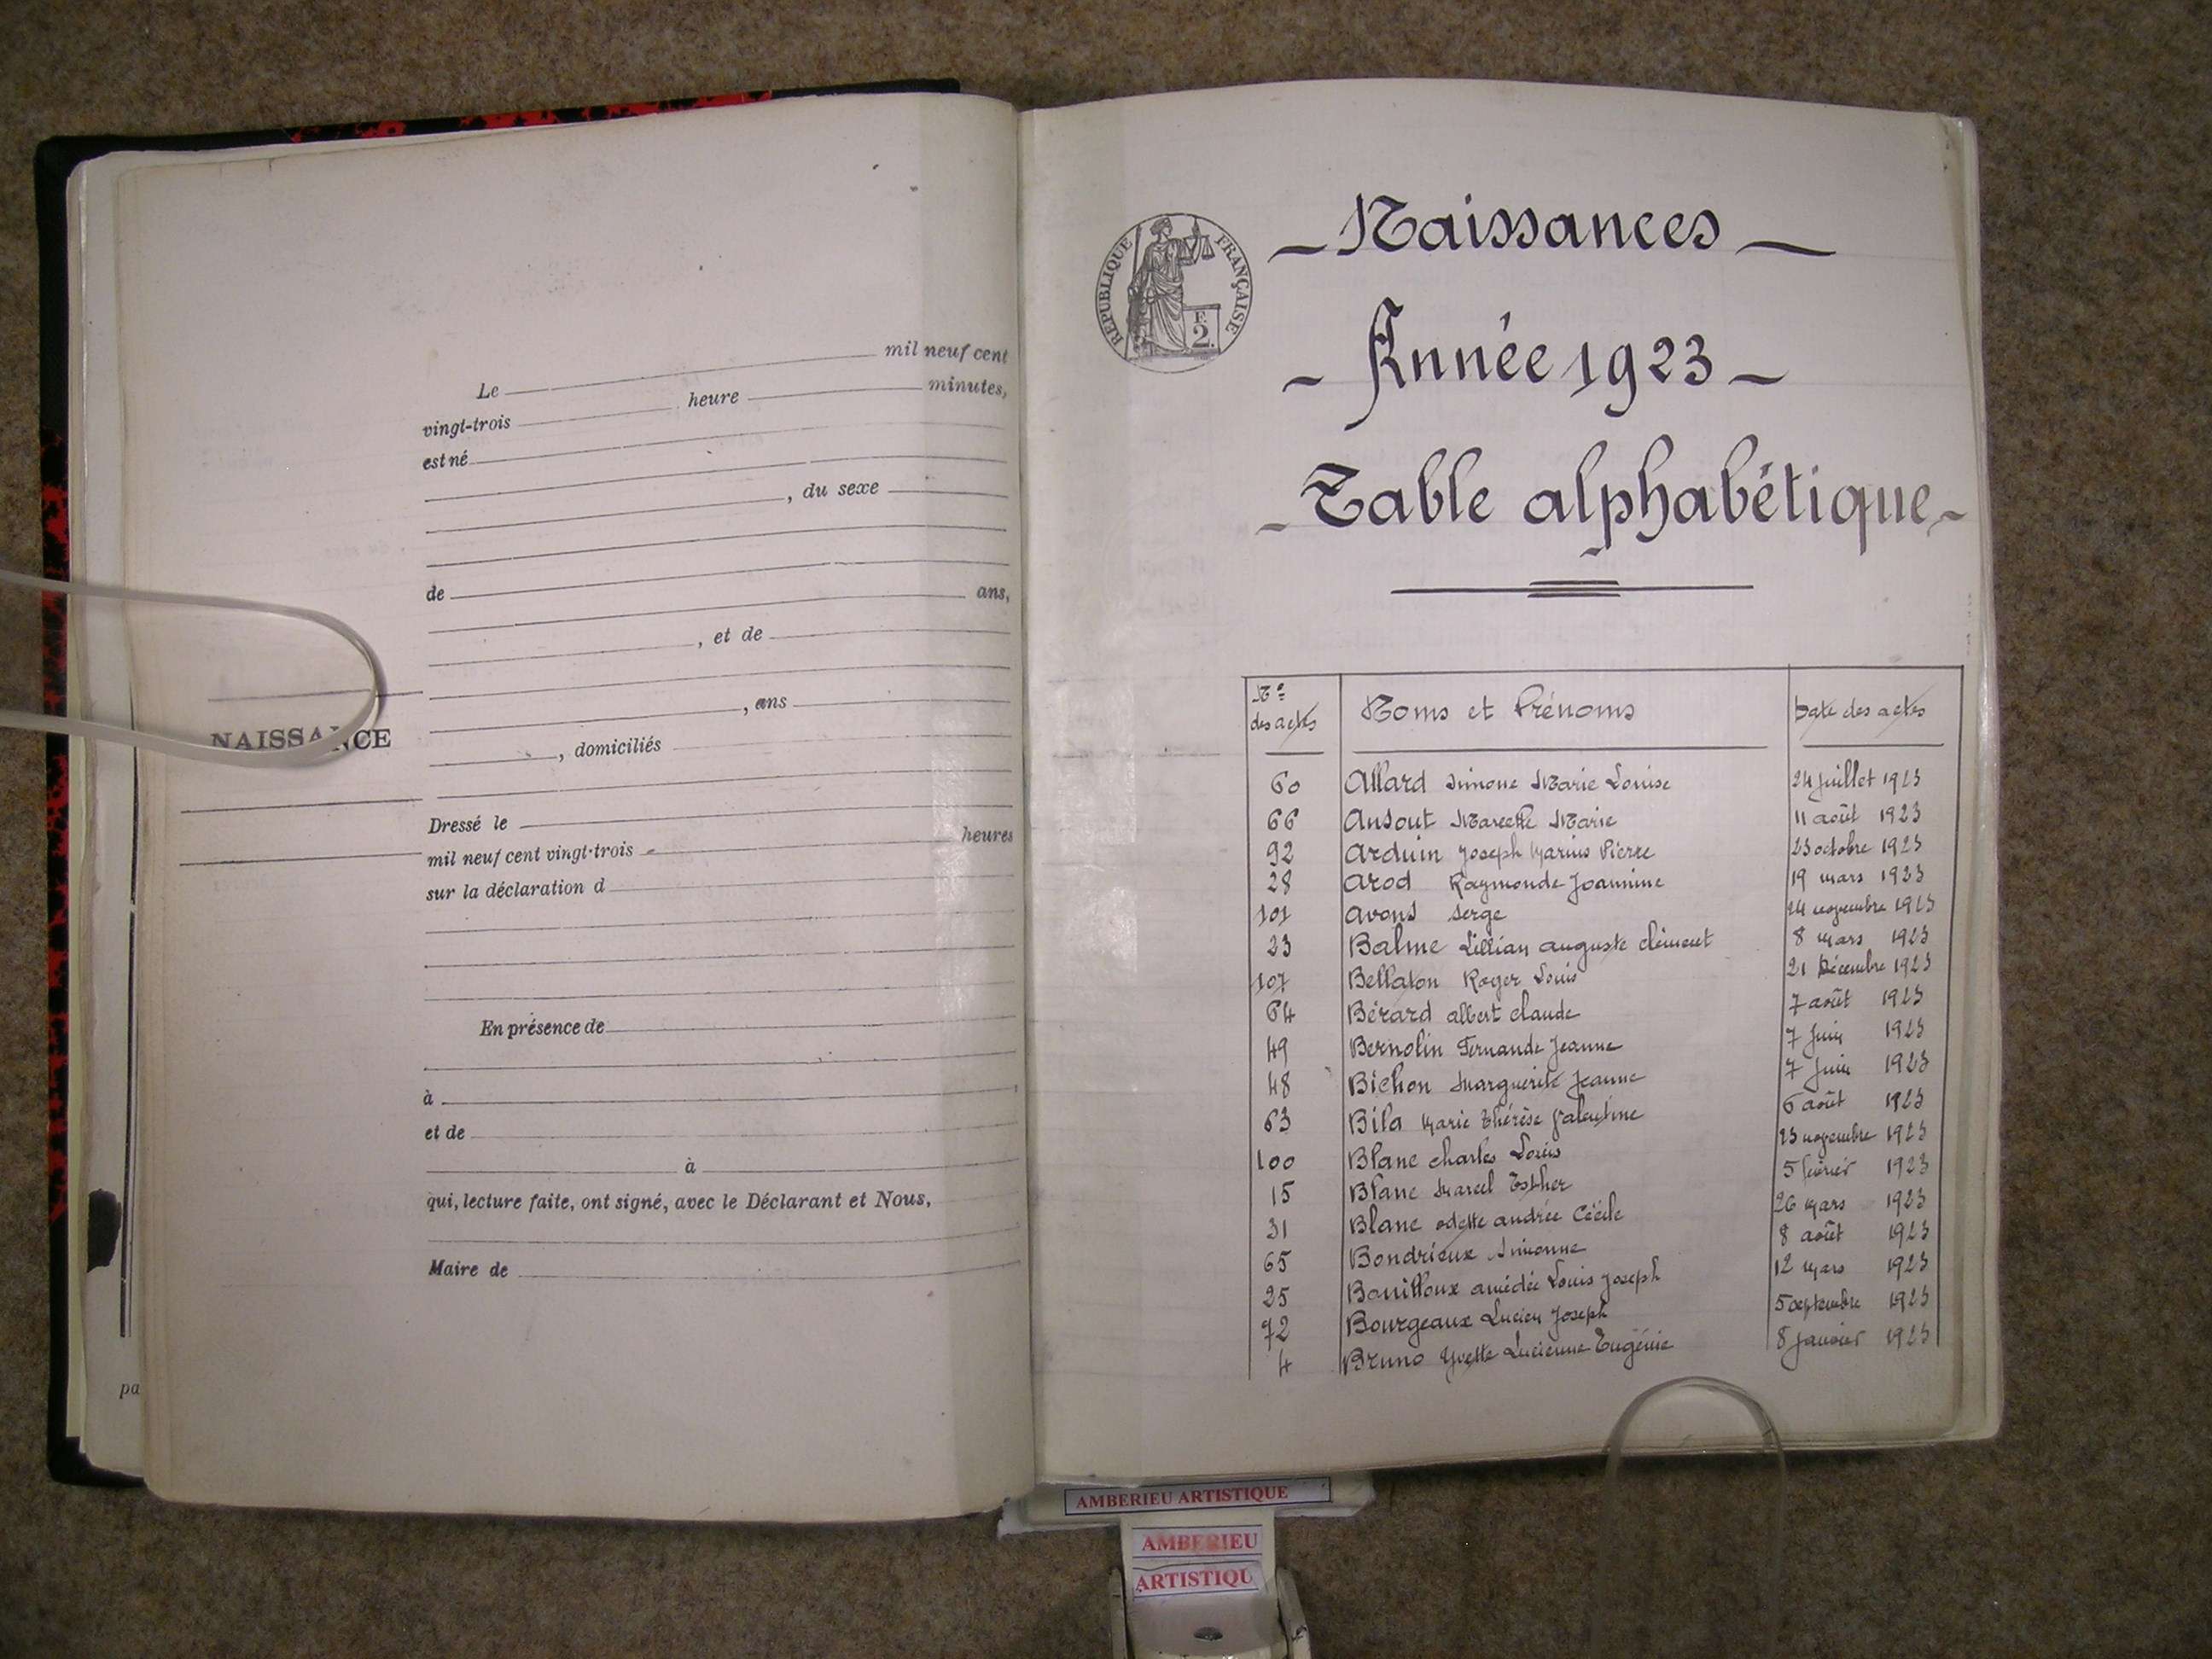 Le mil neuf cent
vingt-trois heure minutes,
est né
, du sexe
de ans,
, et de
, ans
NAISSANCE
, domiciliés
Dressé le
mil neuf cent vingt-trois heures
sur la déclaration d
En présence de
à
et de
à
qui, lecture faite, ont signé, avec le Déclarant et Nous,
Maire de
pa
RÉPUBLIQUE FRANÇAISE
F.
2.
- Naissances -
- Année 1923 -
- Table alphabétique -
Nº des actes Noms et Prénoms Date des actes
60 Allard Simone Marie Louise 24 Juillet 1923
66 Ansout Marcelle Marie 11 août 1923
92 Arduin Joseph Marius Pierre 23 octobre 1923
28 Arod Raymonde Joannine 19 mars 1923
101 Avons Serge 24 novembre 1923
23 Balme Lillian auguste clément 8 Mars 1923
107 Bellaton Roger Louis 21 Décembre 1923
64 Bérard albert claude 7 août 1923
49 Bernolin Fernande Jeanne 7 Juin 1923
48 Bichon Marguerite Jeanne 7 Juin 1923
63 Bila Marie Thérèse Valentine 6 août 1923
100 Blanc charles Louis 23 novembre 1923
15 Blanc Marcel Esther 5 février 1923
31 Blanc odette andrée Cécile 26 Mars 1923
65 Bondrieux Simonne 8 août 1923
25 Bouilloux amédée Louis Joseph 12 Mars 1923
72 Bourgeaux Lucien Joseph 5 septembre 1923
4 Bruno Yvette Lucienne Eugénie 8 Janvier 1923
AMBERIEU ARTISTIQUE
AMBERIEU
ARTISTIQU